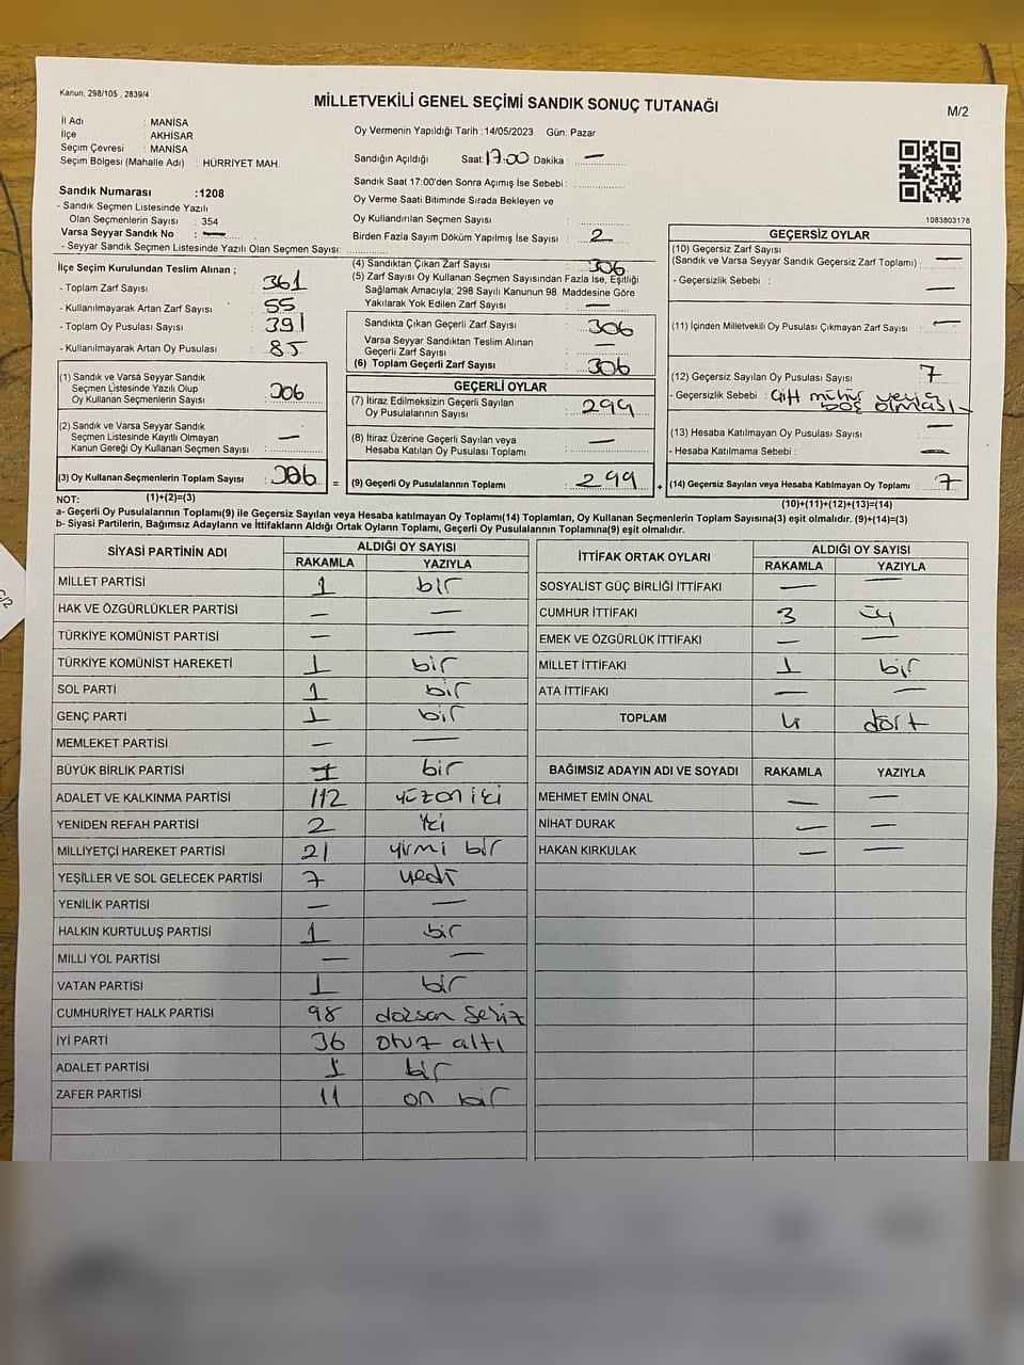 Kanun, 298/105 , 2839/4
MİLLETVEKİLİ GENEL SEÇİMİ SANDIK SONUÇ TUTANAĞI
M/2
İl Adı : MANİSA
İlçe : AKHİSAR
Seçim Çevresi : MANİSA
Seçim Bölgesi (Mahalle Adı) : HÜRRİYET MAH.
Sandık Numarası :1208
- Sandık Seçmen Listesinde Yazılı
Olan Seçmenlerin Sayısı : 354
Varsa Seyyar Sandık No : —
- Seyyar Sandık Seçmen Listesinde Yazılı Olan Seçmen Sayısı:
Oy Vermenin Yapıldığı Tarih :14/05/2023 Gün: Pazar
Sandığın Açıldığı Saat:17:00 Dakika —
Sandık Saat 17:00'den Sonra Açımış İse Sebebi :
Oy Verme Saati Bitiminde Sırada Bekleyen ve
Oy Kullandırılan Seçmen Sayısı :
Birden Fazla Sayım Döküm Yapılmış İse Sayısı : 2
1083803178
İlçe Seçim Kurulundan Teslim Alınan ;
- Toplam Zarf Sayısı : 361
- Kullanılmayarak Artan Zarf Sayısı : 55
- Toplam Oy Pusulası Sayısı : 391
- Kullanılmayarak Artan Oy Pusulası : 85
(1) Sandık ve Varsa Seyyar Sandık
Seçmen Listesinde Yazılı Olup
Oy Kullanan Seçmenlerin Sayısı : 306
(2) Sandık ve Varsa Seyyar Sandık
Seçmen Listesinde Kayıtlı Olmayan
Kanun Gereği Oy Kullanan Seçmen Sayısı : —
(3) Oy Kullanan Seçmenlerin Toplam Sayısı : 306 =
(4) Sandıktan Çıkan Zarf Sayısı : 306
(5) Zarf Sayısı Oy Kullanan Seçmen Sayısından Fazla İse, Eşitliği
Sağlamak Amacıyla, 298 Sayılı Kanunun 98. Maddesine Göre
Yakılarak Yok Edilen Zarf Sayısı : —
Sandıkta Çıkan Geçerli Zarf Sayısı : 306
Varsa Seyyar Sandıktan Teslim Alınan
Geçerli Zarf Sayısı : —
(6) Toplam Geçerli Zarf Sayısı : 306
GEÇERLİ OYLAR
(7) İtiraz Edilmeksizin Geçerli Sayılan
Oy Pusulalarının Sayısı : 299
(8) İtiraz Üzerine Geçerli Sayılan veya
Hesaba Katılan Oy Pusulası Toplamı : —
(9) Geçerli Oy Pusulalarının Toplamı : 299 +
GEÇERSİZ OYLAR
(10) Geçersiz Zarf Sayısı
(Sandık ve Varsa Seyyar Sandık Geçersiz Zarf Toplamı) : —
- Geçersizlik Sebebi : —
(11) İçinden Milletvekili Oy Pusulası Çıkmayan Zarf Sayısı : —
(12) Geçersiz Sayılan Oy Pusulası Sayısı : 7
- Geçersizlik Sebebi : Çift mühür veya
boş olması
(13) Hesaba Katılmayan Oy Pusulası Sayısı : —
- Hesaba Katılmama Sebebi : —
(14) Geçersiz Sayılan veya Hesaba Katılmayan Oy Toplamı : 7
NOT: (1)+(2)=(3)
(10)+(11)+(12)+(13)=(14)
a- Geçerli Oy Pusulalarının Toplamı(9) ile Geçersiz Sayılan veya Hesaba katılmayan Oy Toplamı(14) Toplamları, Oy Kullanan Seçmenlerin Toplam Sayısına(3) eşit olmalıdır. (9)+(14)=(3)
b- Siyasi Partilerin, Bağımsız Adayların ve İttifakların Aldığı Ortak Oyların Toplamı, Geçerli Oy Pusulalarının Toplamına(9) eşit olmalıdır.
SİYASİ PARTİNİN ADI ALDIĞI OY SAYISI
RAKAMLA YAZIYLA
MİLLET PARTİSİ 1 bir
HAK VE ÖZGÜRLÜKLER PARTİSİ — —
TÜRKİYE KOMÜNİST PARTİSİ — —
TÜRKİYE KOMÜNİST HAREKETİ 1 bir
SOL PARTİ 1 bir
GENÇ PARTİ 1 bir
MEMLEKET PARTİSİ — —
BÜYÜK BİRLİK PARTİSİ 1 bir
ADALET VE KALKINMA PARTİSİ 112 yüzoniki
YENİDEN REFAH PARTİSİ 2 iki
MİLLİYETÇİ HAREKET PARTİSİ 21 yirmi bir
YEŞİLLER VE SOL GELECEK PARTİSİ 7 yedi
YENİLİK PARTİSİ — —
HALKIN KURTULUŞ PARTİSİ 1 bir
MİLLİ YOL PARTİSİ — —
VATAN PARTİSİ 1 bir
CUMHURİYET HALK PARTİSİ 98 doksan sekiz
İYİ PARTİ 36 otuz altı
ADALET PARTİSİ 1 bir
ZAFER PARTİSİ 11 on bir
İTTİFAK ORTAK OYLARI ALDIĞI OY SAYISI
RAKAMLA YAZIYLA
SOSYALİST GÜÇ BİRLİĞİ İTTİFAKI — —
CUMHUR İTTİFAKI 3 üç
EMEK VE ÖZGÜRLÜK İTTİFAKI — —
MİLLET İTTİFAKI 1 bir
ATA İTTİFAKI — —
TOPLAM 4 dört
BAĞIMSIZ ADAYIN ADI VE SOYADI RAKAMLA YAZIYLA
MEHMET EMİN ÖNAL — —
NİHAT DURAK — —
HAKAN KIRKULAK — —